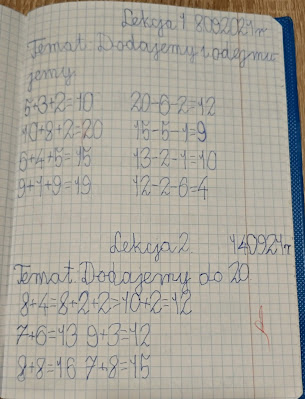 Lekcja 1 8092021r
Temat: Dodajemy i odejmu
jemy
5+3+2=10 20-6-2=12
10+8+2=20 15-5-1=9
6+4+5=15 13-2-1=10
9+1+9=19 12-2-6=4
Lekcja 2 140921r
Temat: Dodajemy do 20
8+4=8+2+2=10+2=12
7+6=13 9+3=12
8+8=16 7+8=15